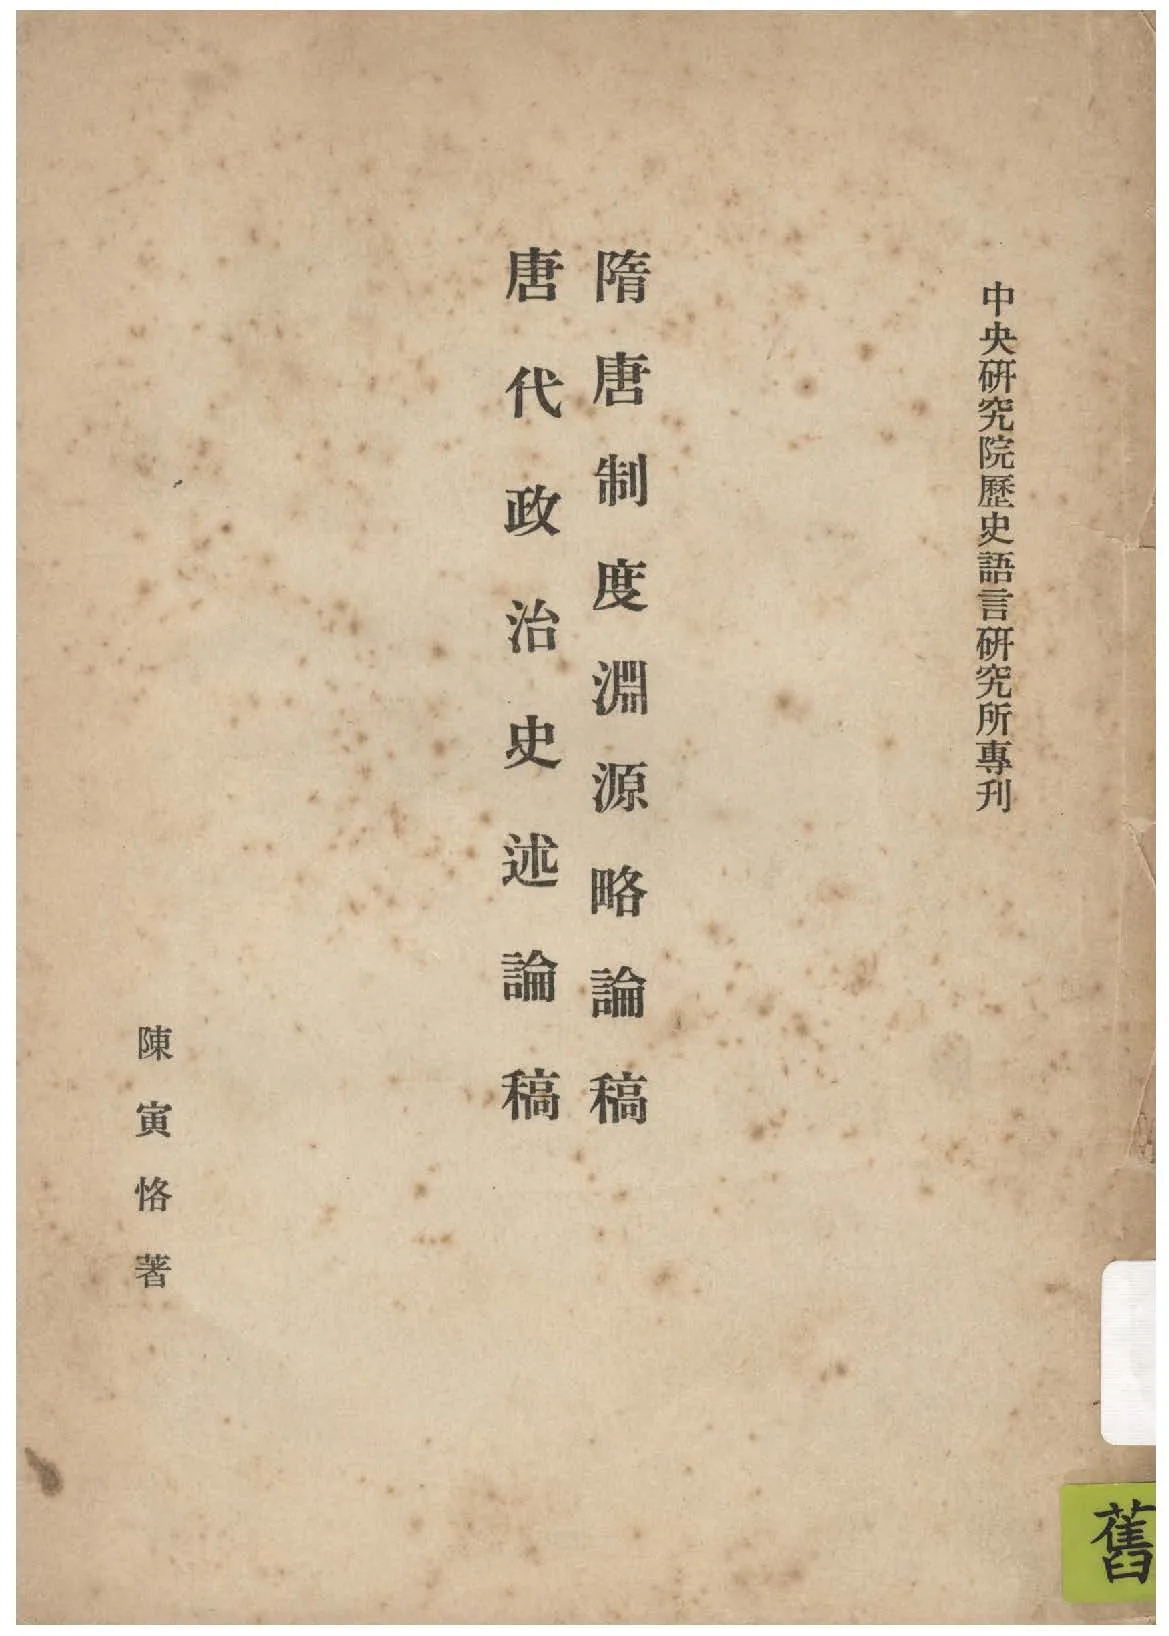 中央研究院歷史語言研究所專刊
隋唐制度淵源略論稿
唐代政治史述論稿
陳寅恪著
舊